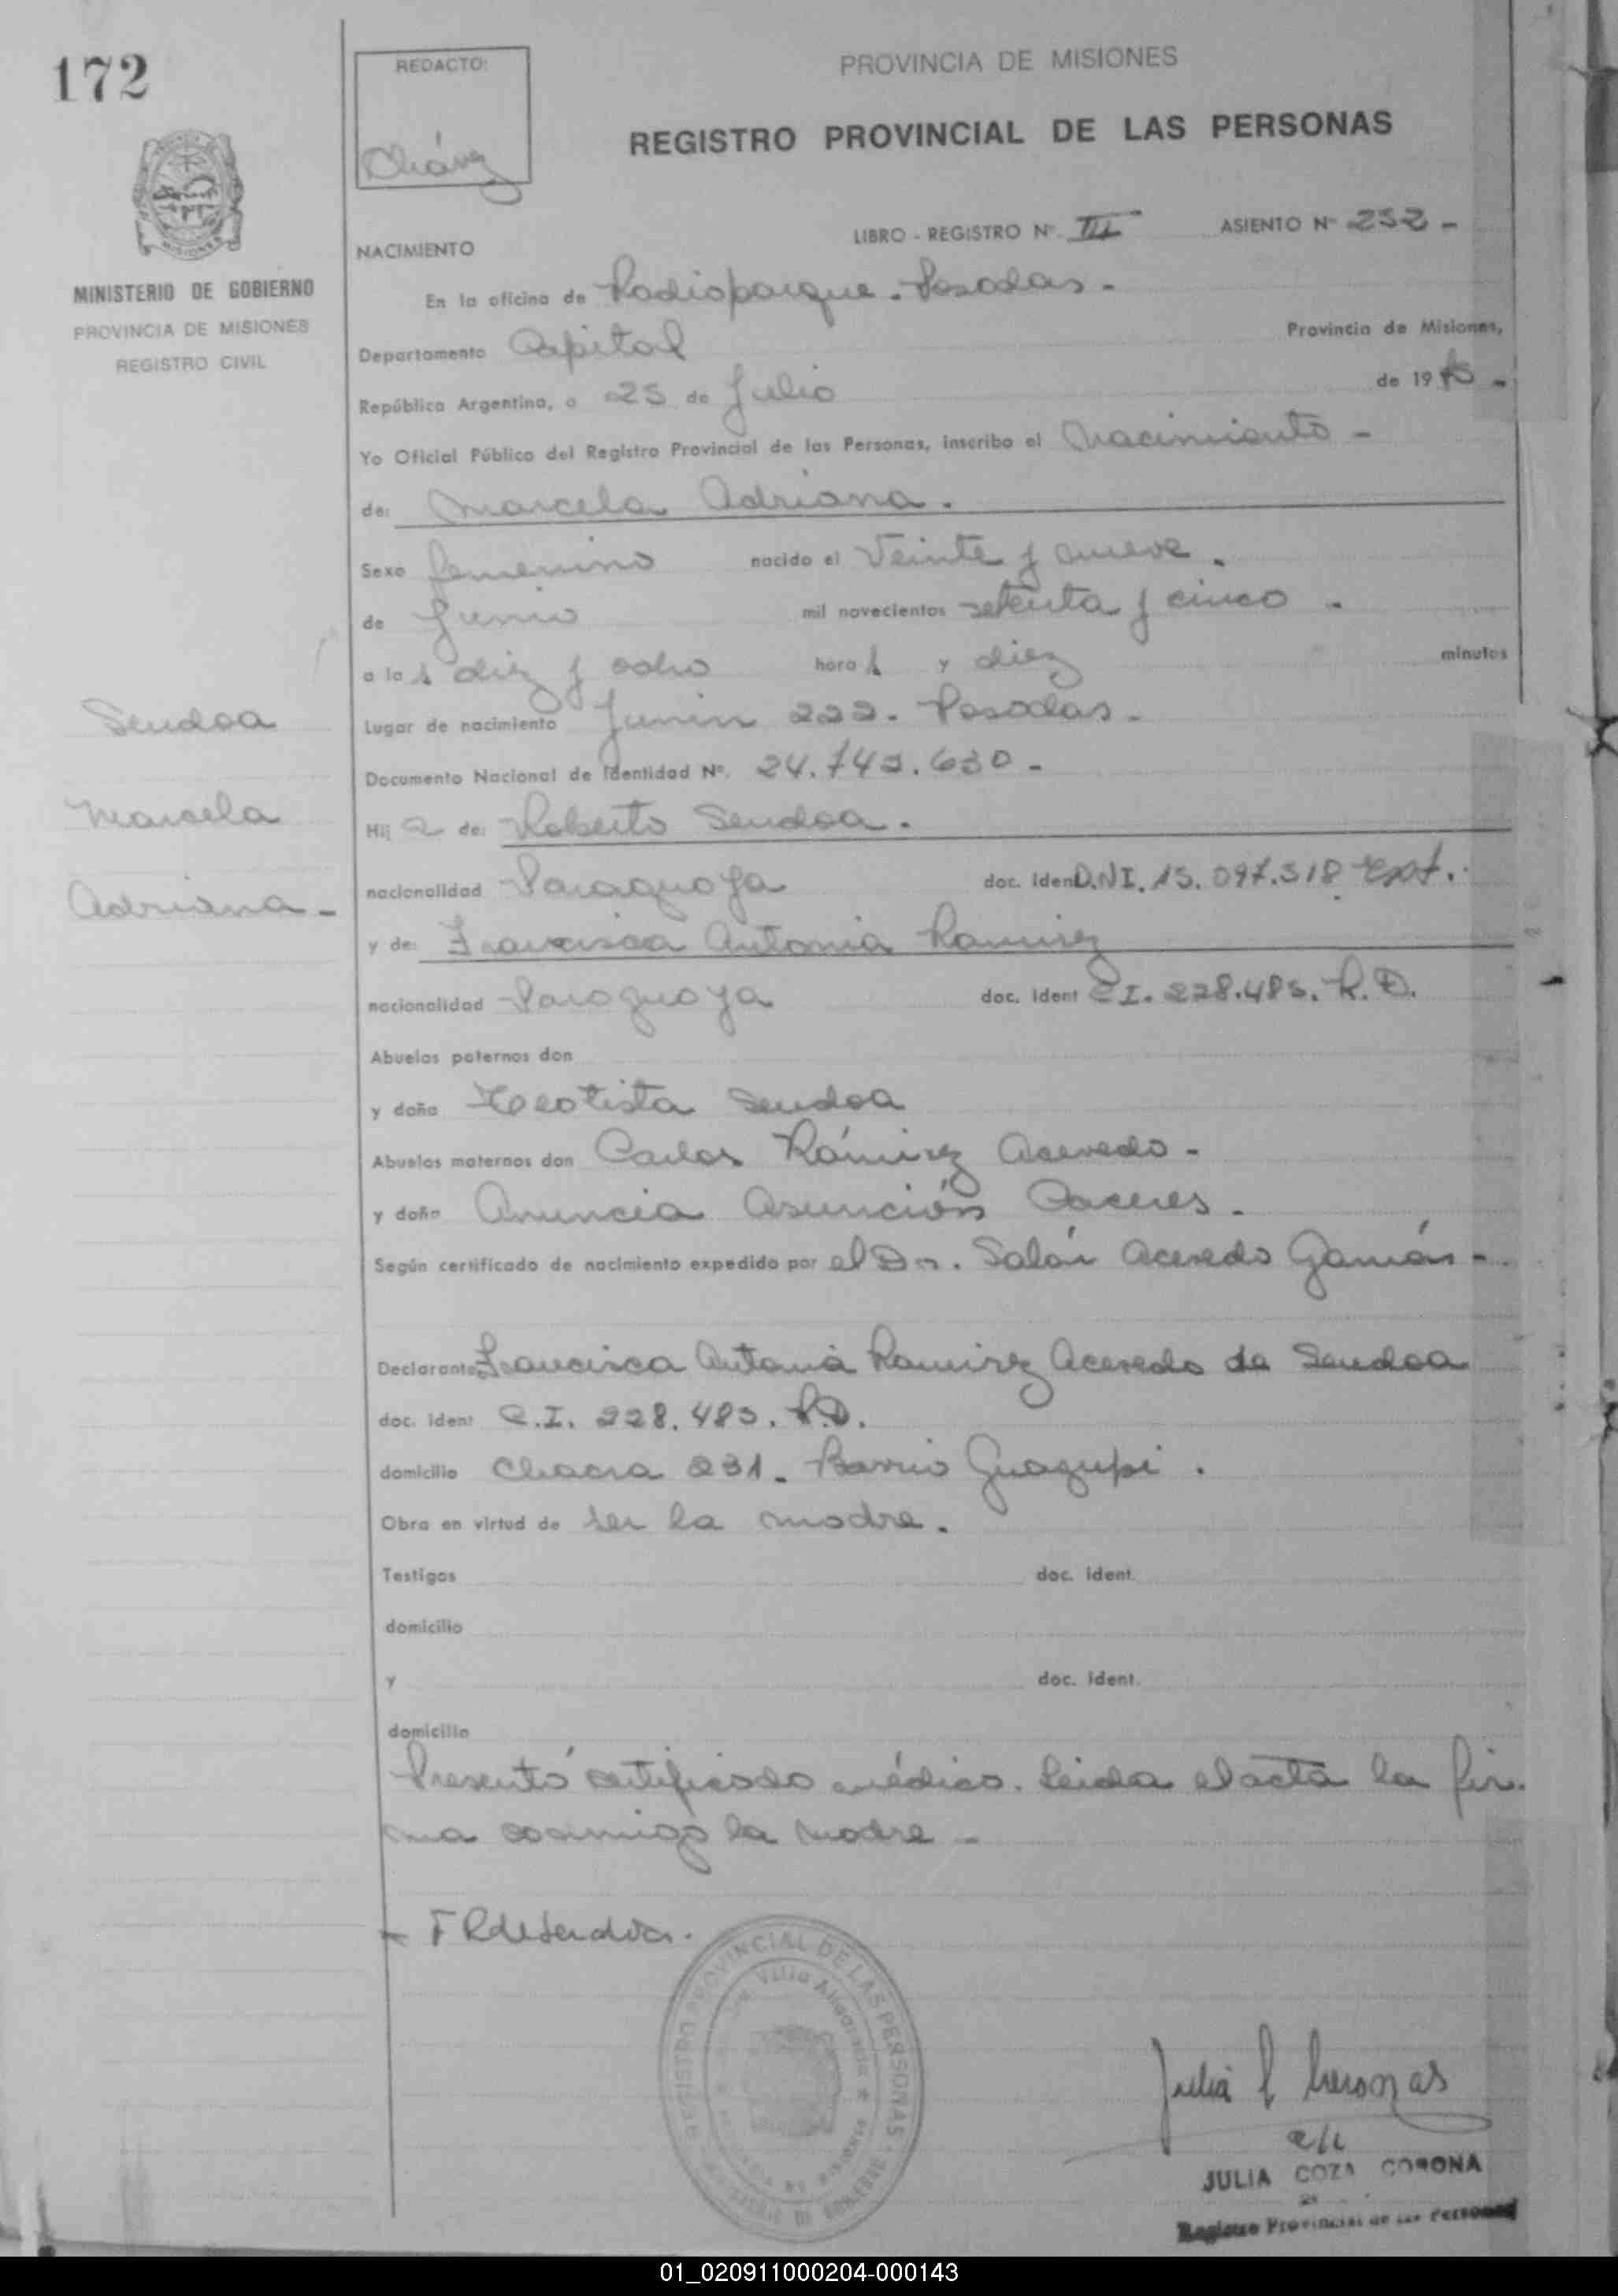 172
REDACTO:
Chávez
PROVINCIA DE MISIONES
REGISTRO PROVINCIAL DE LAS PERSONAS
MINISTERIO DE GOBIERNO
PROVINCIA DE MISIONES
REGISTRO CIVIL
LIBRO - REGISTRO Nº III ASIENTO Nº 252 -
NACIMIENTO
En la oficina de Radioparque - Posadas -
Departamento Capital Provincia de Misiones,
República Argentina, a 25 de Julio de 1975 -
Yo Oficial Público del Registro Provincial de las Personas, inscribo el Nacimiento -
de: Marcela Adriana .
Sexo femenino nacido el Veinte y nueve .
de Junio mil novecientos setenta y cinco .
a las diez y ocho horas y diez minutos
Lugar de nacimiento Junin 222 - Posadas -
Documento Nacional de Identidad Nº. 24.742.630 -
Hija de: Roberto Sendoa .
nacionalidad Paraguaya doc. Iden D.N.I. 15.097.518 Ext.
y de: Francisca Antonia Ramirez
nacionalidad Paraguaya doc. Ident C.I. 228.485. R.D.
Abuelos paternos don
y doña Teotista Sendoa
Abuelos maternos don Carlos Rámirez Acevedo -
y doña Anuncia Asunción Caceres .
Según certificado de nacimiento expedido por el Dr. Acevedo -
Declarante Francisca Antonia Ramirez Acevedo de Sendoa
doc. ident C.I. 228.485. R.D.
domicilio Chacra 231 - Barrio .
Obra en virtud de ser la madre .
Testigos doc. ident.
domicilio
y doc. ident.
domicilio
Presentó certificado médico. Leida el acta la fir-
ma conmigo la madre -
Sendoa
Marcela
Adriana -
F R de Sendoa .
REGISTRO PROVINCIAL DE LAS PERSONAS
JULIA COZA CORONA
Registro Provincial de las Personas
01_020911000204-000143